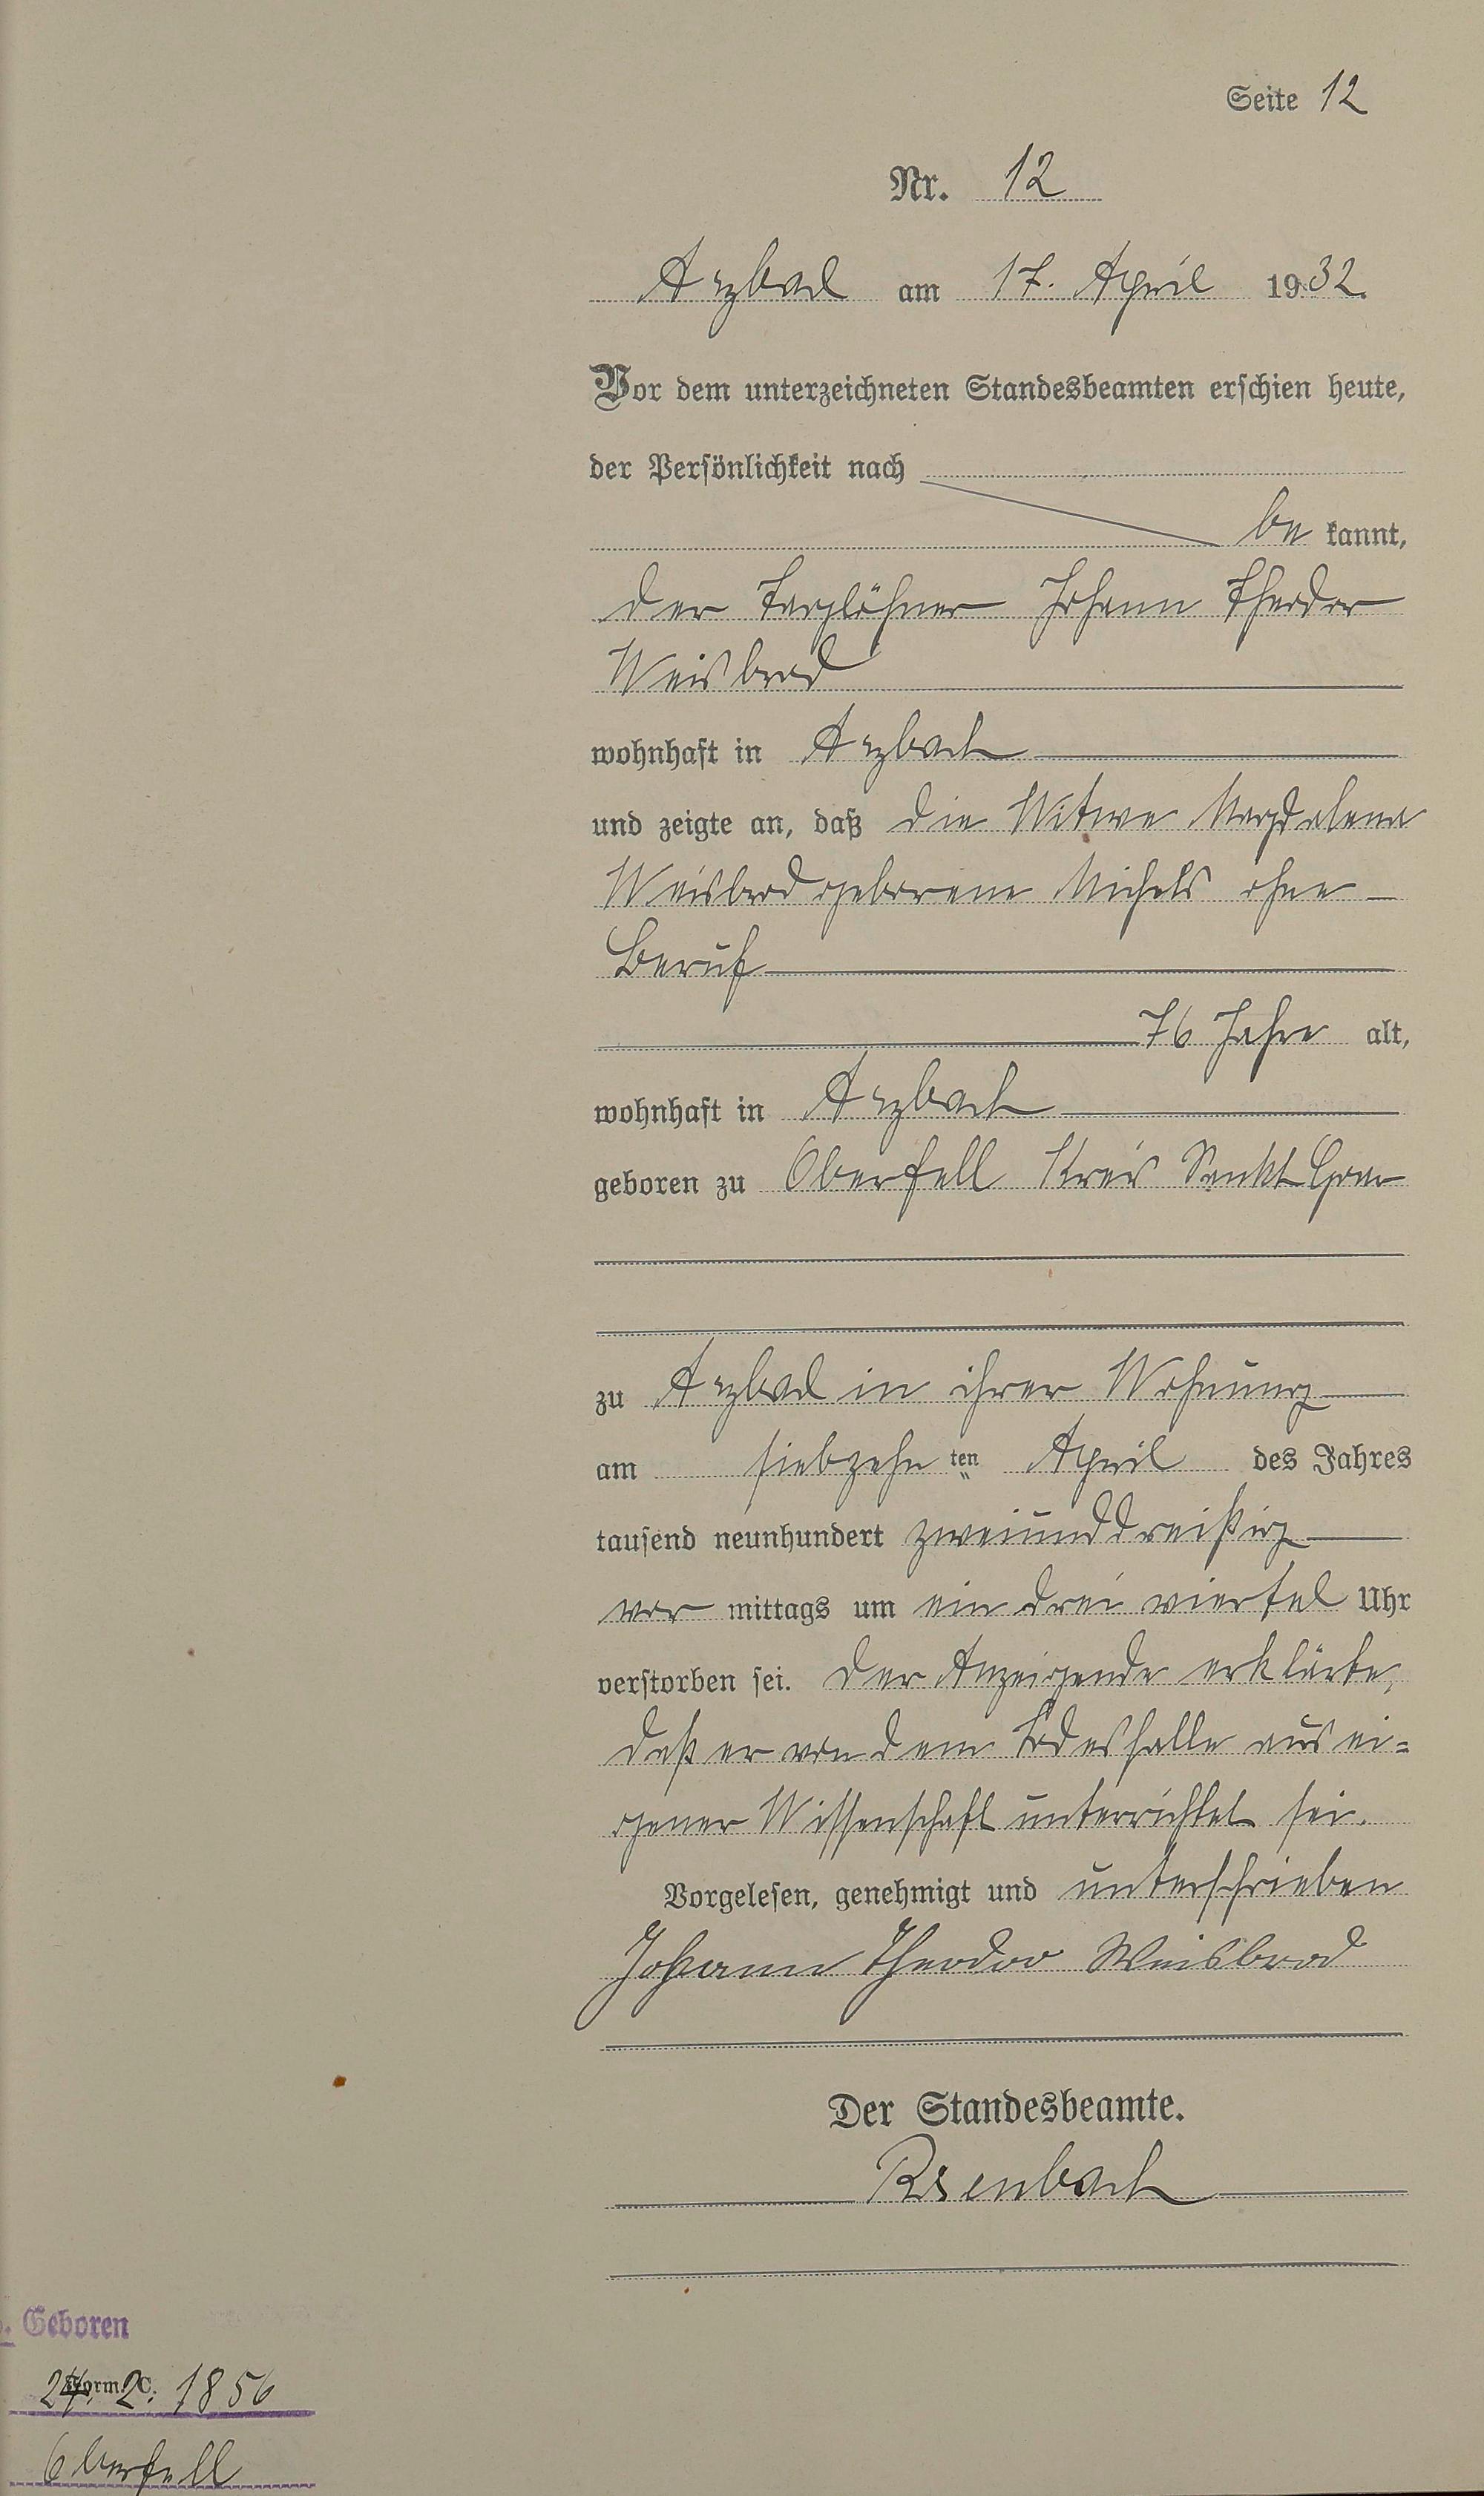 Seite 12
Nr. 12
Arzbach am 17. April 1932.
Vor dem unterzeichneten Standesbeamten erschien heute,
der Persönlichkeit nach
be kannt,
der Taglöhner Johann Theodor
Weisbrod
wohnhaft in Arzbach
und zeigte an, daß die Witwe Magdalena
Weisbrod geborene Michels ohne
Beruf
76 Jahre alt,
wohnhaft in Arzbach
geboren zu Oberfell Kreis Sankt Goar
zu Arzbach in ihrer Wohnung
am siebzehn ten April des Jahres
tausend neunhundert zweiunddreißig
vor mittags um ein drei viertel Uhr
verstorben sei. Der Anzeigende erklärte,
daß er von dem Todesfalle aus ei-
gener Wissenschaft unterrichtet sei.
Vorgelesen, genehmigt und unterschrieben
Johann Theodor Weisbrod
Der Standesbeamte.
Geboren
Form. C.
2. 1856
Oberfell